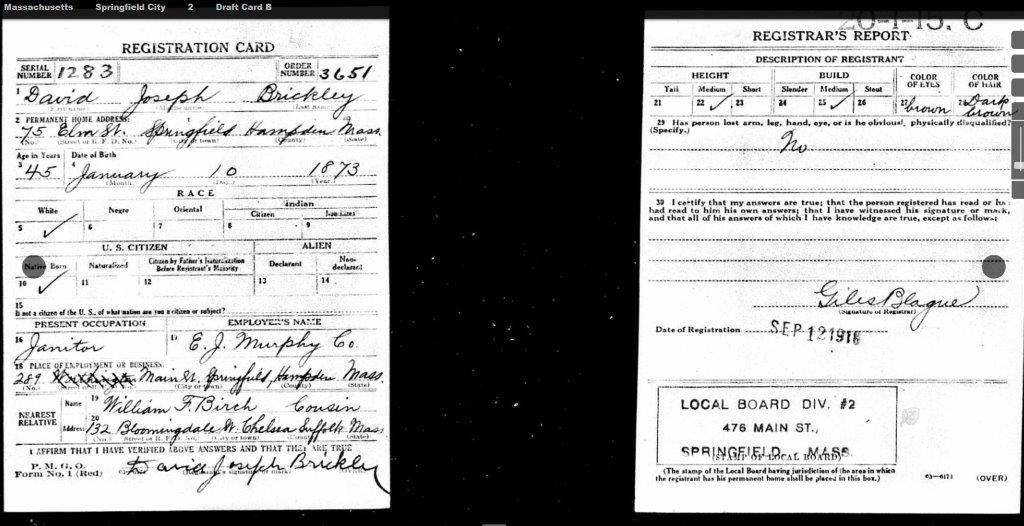 Massachusetts Springfield City 2 Draft Card B
REGISTRATION CARD
SERIAL NUMBER 1283 ORDER NUMBER 3651
1 David Joseph Brickley
2 PERMANENT HOME ADDRESS:
75 Elm St. Springfield Hampden Mass.
(No.) (Street or R. F. D. No.) (City or town) (County) (State)
Age in Years Date of Birth
3 45 4 January 10 1873
(Month) (Year)
RACE
White Negro Oriental Indian
Citizen Non-citizen
5 ✓ 6 7 8 9
U. S. CITIZEN ALIEN
Native Born Naturalized Citizen by Father's Naturalization Before Registrant's Majority Declarant Non-declarant
10 ✓ 11 12 13 14
15
If not a citizen of the U. S., of what nation are you a citizen or subject?
PRESENT OCCUPATION EMPLOYER'S NAME
16 Janitor 17 E. J. Murphy Co.
18 PLACE OF EMPLOYMENT OR BUSINESS:
289 Main St., Springfield, Hampden Mass.
(No.) (City or town) (County) (State)
NEAREST RELATIVE
Name 19 William F. Birch Cousin
20
Address 132 Bloomingdale St. Chelsea Suffolk Mass
(No.) (Street or R. F. D. No.) (City or town) (County) (State)
I AFFIRM THAT I HAVE VERIFIED ABOVE ANSWERS AND THAT THEY ARE TRUE
P. M. G. O.
Form No. 1 (Red) David Joseph Brickley
REGISTRAR'S REPORT
DESCRIPTION OF REGISTRANT
HEIGHT BUILD COLOR OF EYES COLOR OF HAIR
Tall Medium Short Slender Medium Stout
21 22 ✓ 23 24 25 ✓ 26 27 brown 28 Dark brown
29 Has person lost arm, leg, hand, eye, or is he obviously physically disqualified?
(Specify.)
No
30 I certify that my answers are true; that the person registered has read or has
had read to him his own answers; that I have witnessed his signature or mark,
and that all of his answers of which I have knowledge are true, except as follows:
Giles Blague
(Signature of Registrar)
Date of Registration SEP 12 1918
LOCAL BOARD DIV. #2
476 MAIN ST.,
SPRINGFIELD, MASS.
(STAMP OF LOCAL BOARD)
(The stamp of the Local Board having jurisdiction of the area in which
the registrant has his permanent home shall be placed in this box.)
03—6171 (OVER)